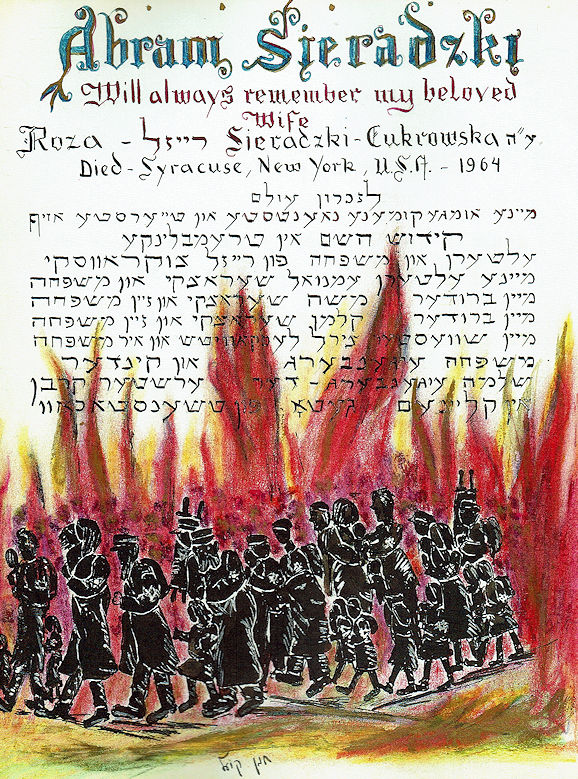 Abram Sieradzki
Will always remember my beloved
Wife
Roza - רייזל Sieradzki-Cukrowska ע"ה
Died - Syracuse, New York, U.S.A. - 1964
לזכרון עולם
מיינע אומגעקומענע נאענטסטע און טייערסטע אויף
קידוש השם אין טרעמבלינקע
עלטערן און משפחה פון רייזל צוקראווסקי
מיינע עלטערן עמנואל שעראצקי און משפחה
מיין ברודער משה שעראצקי און זיין משפחה
מיין ברודער קלמן שעראצקי און זיין משפחה
מיין שוועסטער צירל און איר משפחה
משפחה און קינדער
שלמה - דער ערשטער קרבן
אין קליינעם געטא אין טשענסטאכאוו